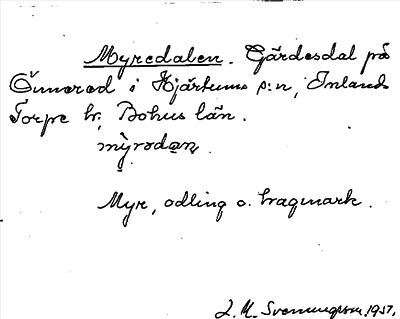 Myredalen. Gärdesdal på
Önnered i Hjärtums s:n, Inlands
Torpe hr, Bohus län.
mỳrədaṇ.
Myr, odling o. hagmark.
J. M. Svenningsson. 1937.